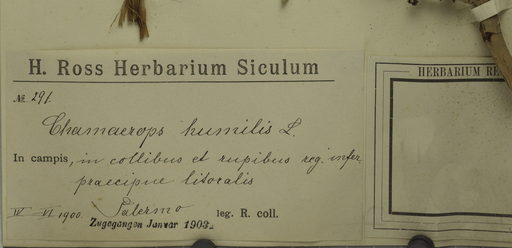 H. Ross Herbarium Siculum
№ 291.
Chamaerops humilis L.
In campis, in collibus et rupibus reg. infer.
praecipue litoralis
IV – VI 1900. Palermo leg. R. coll.
Zugegangen Januar 1903.
HERBARIUM RE